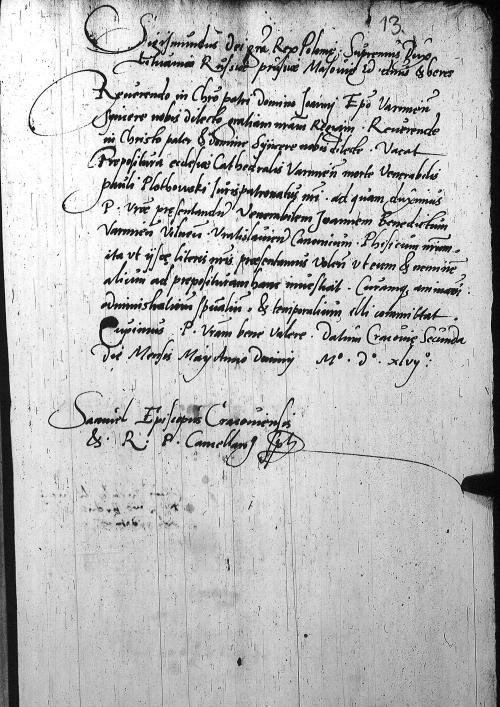 13
Sigismundus dei gra Rex Polonię, Supremus Dux
Lithuaniae Russiae prusiae Masoviae etc. dnus & heres
Reverendo in Chro patri domino Joanni Epo Varmien
syncere nobis dilecto gratiam nram Regiam. Reverende
in Christo pater & domine syncere nobis dilecte. Vacat
Prepositura ecclesiae Cathedralis Varmien morte venerabilis
pauli Plothowski Jurispatronatus nri. ad quam duximus
P. Vrae pręsentandum Venerabilem Joannem Benedictum
Varmien Vratislavien Canonicum. Phisicum nrum.
ita ut ijsce literis nris praesentamus volen ut eum & neminem
alium ad preposituram hanc investiat. Curamque animarum.
administrationem spualium. & temporalium illi committat.
Cupimus. P. Vram bene valere. Datum Cracovię Secunda
die Mensis Maij Anno domini M°. D°. xlvij°:
Samuel Episcopus Cracoviensis
& R. P. Cancellarius sst